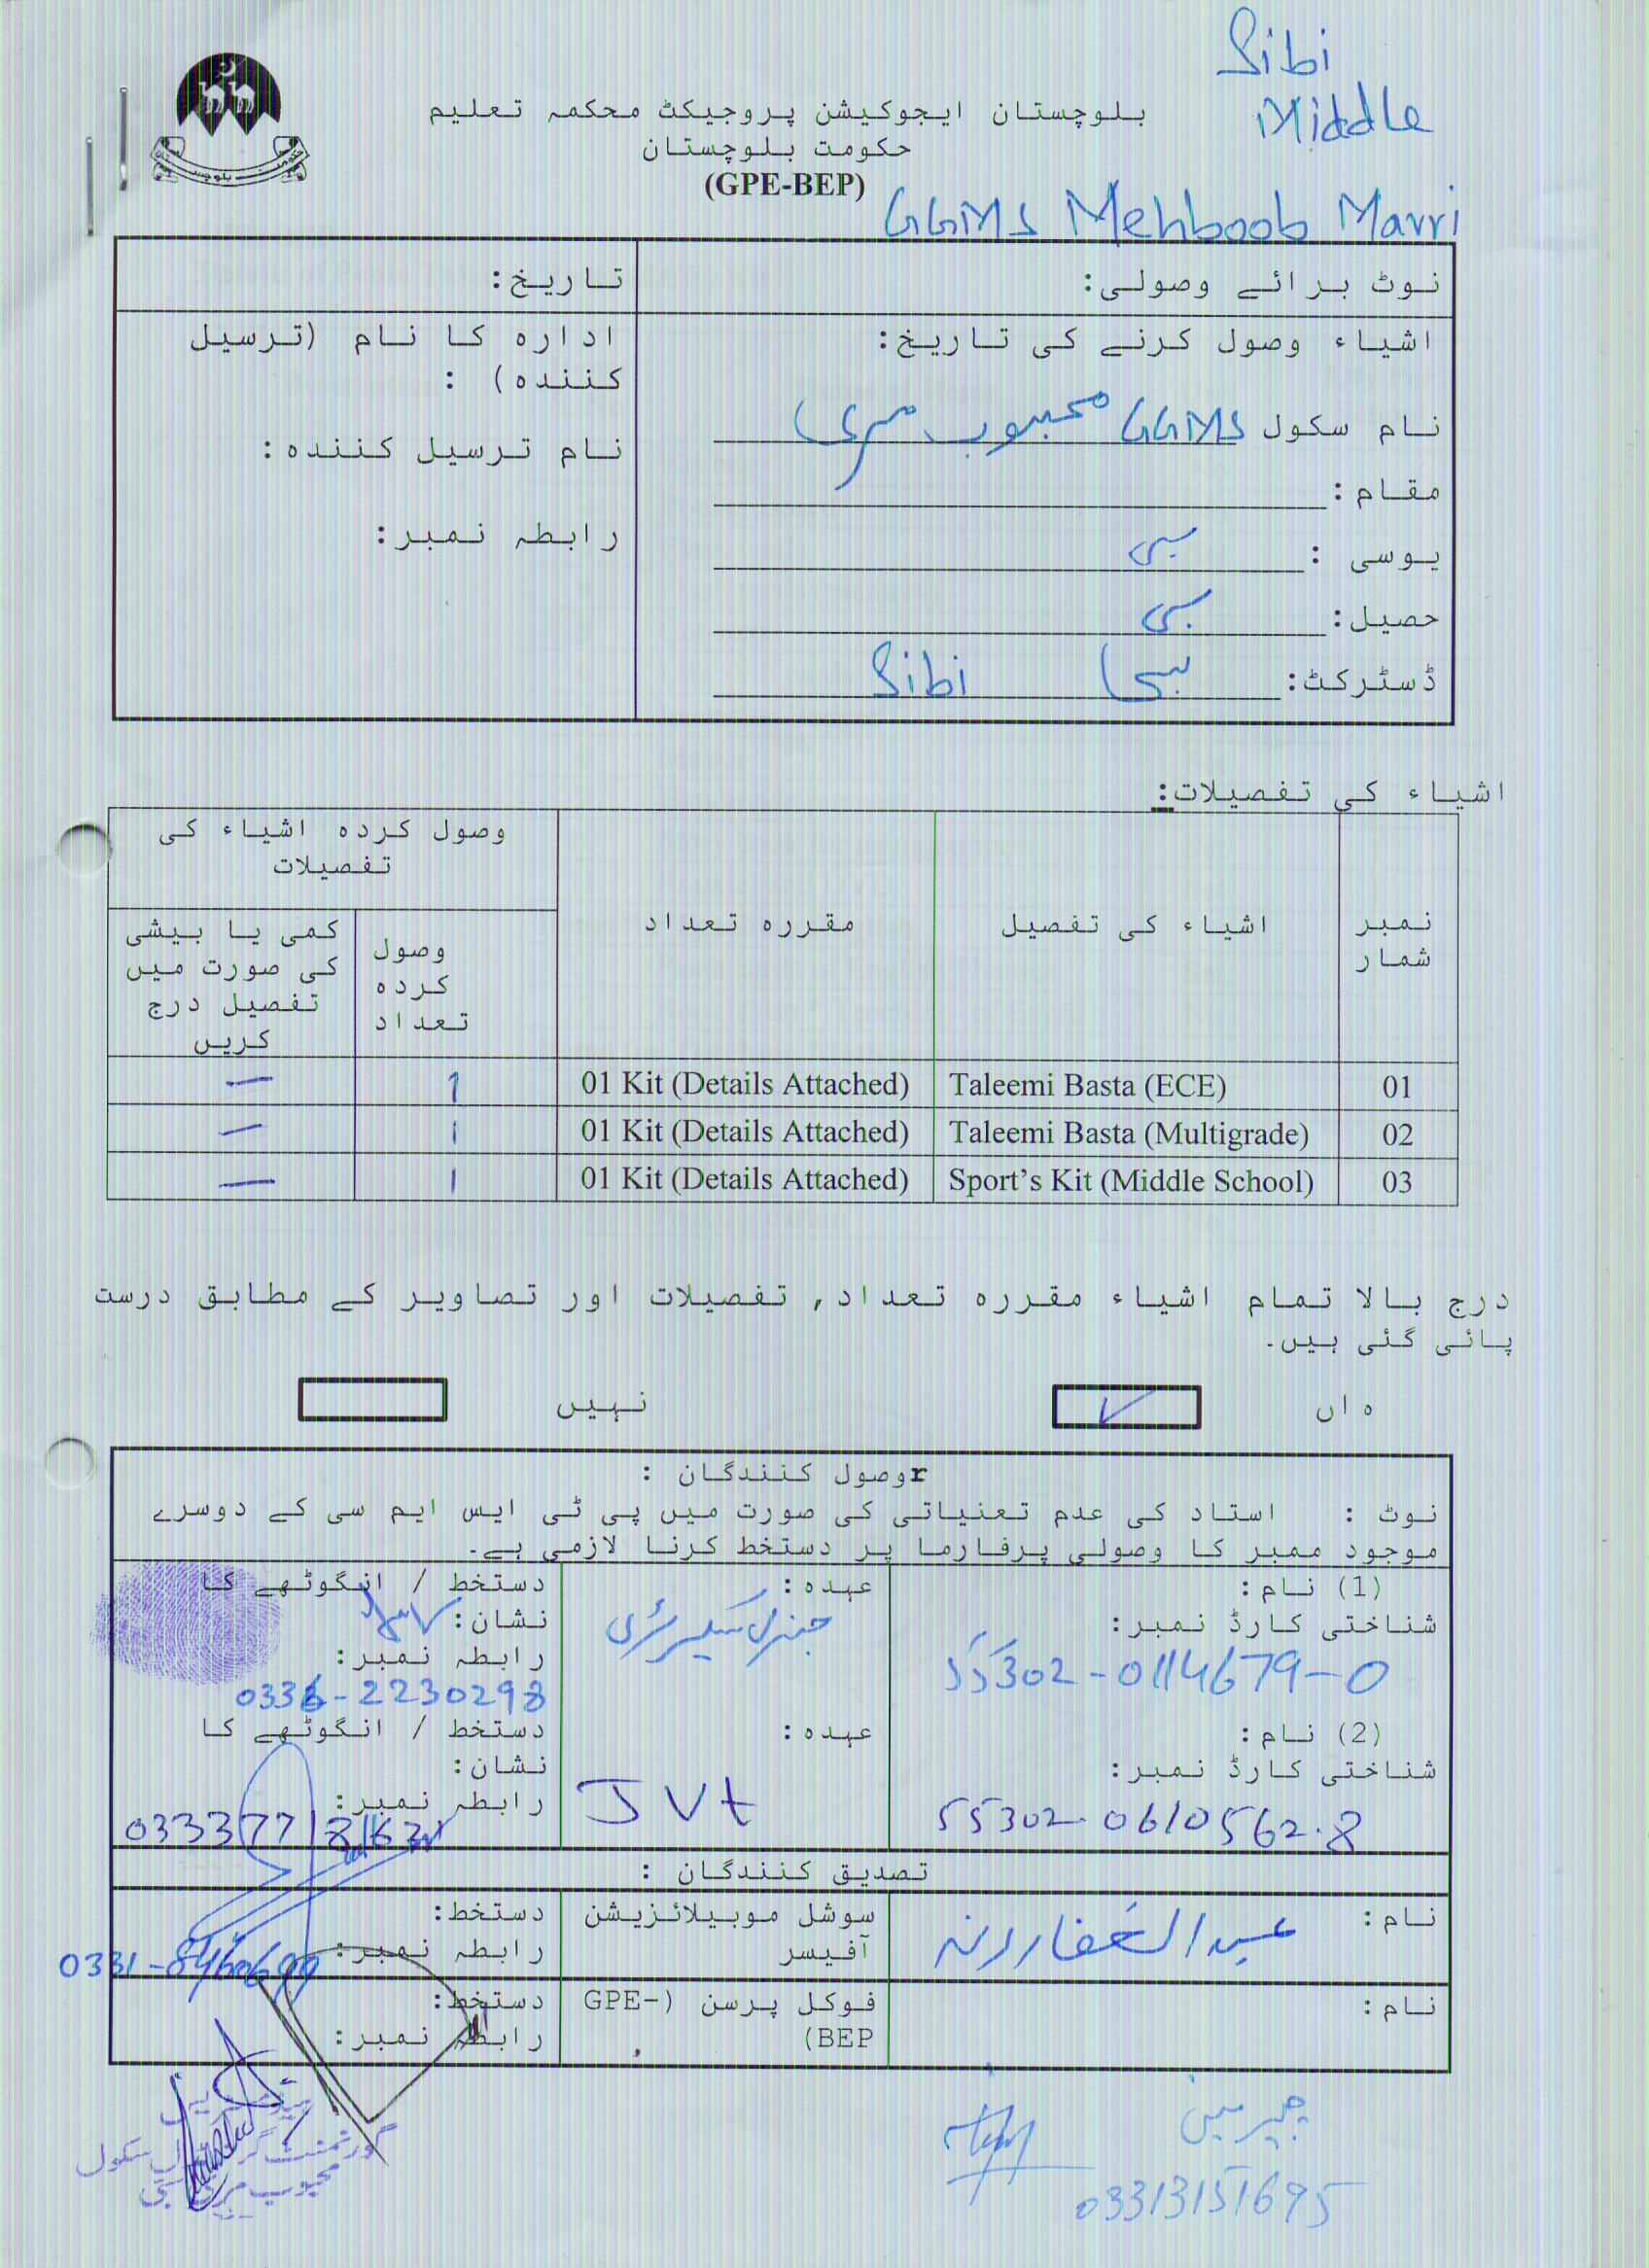 Sibi
Middle
بلوچستان ایجوکیشن پروجیکٹ محکمہ تعلیم
حکومت بلوچستان
(GPE-BEP)
GGMS Mehboob Marri
نوٹ برائے وصولی:
تاریخ:
اشیاء وصول کرنے کی تاریخ:
نام سکول GGMS محبوب مری
مقام:
یوسی : سبی
حصیل: سبی
ڈسٹرکٹ: سبی Sibi
ادارہ کا نام (ترسیل
کنندہ) :
نام ترسیل کنندہ:
رابطہ نمبر:
اشیاء کی تفصیلات:
نمبر شمار
اشیاء کی تفصیل
مقررہ تعداد
وصول کردہ اشیاء کی تفصیلات
وصول کردہ تعداد
کمی یا بیشی کی صورت میں تفصیل درج کریں
01 Taleemi Basta (ECE) 01 Kit (Details Attached) 1 —
02 Taleemi Basta (Multigrade) 01 Kit (Details Attached) 1 —
03 Sport's Kit (Middle School) 01 Kit (Details Attached) 1 —
درج بالا تمام اشیاء مقررہ تعداد, تفصیلات اور تصاویر کے مطابق درست
پائی گئی ہیں۔
ہاں ✓
نہیں
rوصول کنندگان :
نوٹ : استاد کی عدم تعنیاتی کی صورت میں پی ٹی ایس ایم سی کے دوسرے
موجود ممبر کا وصولی پرفارما پر دستخط کرنا لازمی ہے۔
(1) نام:
شناختی کارڈ نمبر:
55302-0114679-0
عہدہ:
جنرل سیکرٹری
دستخط / انگوٹھے کا
نشان:
رابطہ نمبر:
0336-2230298
(2) نام:
شناختی کارڈ نمبر:
55302-0610562-8
عہدہ:
JVt
دستخط / انگوٹھے کا
نشان:
رابطہ نمبر:
تصدیق کنندگان :
نام: عبدالغفار رند
سوشل موبیلائزیشن
آفیسر
دستخط:
رابطہ نمبر:
نام:
فوکل پرسن (GPE-
BEP)
دستخط:
رابطہ نمبر:
چیرمین
03313151695
ہیڈ مسٹریس
گورنمنٹ گرلز مڈل سکول
محبوب مری سبی